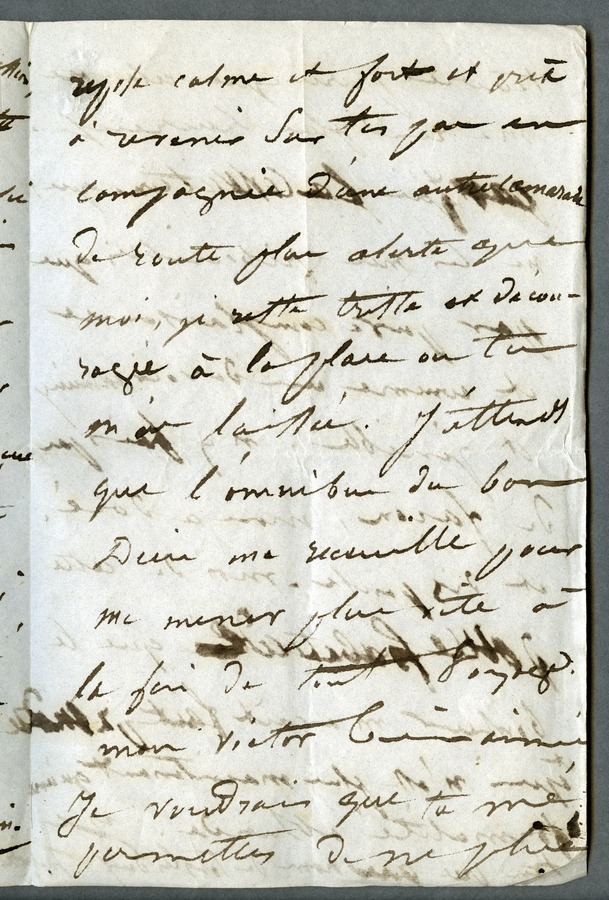 reste calme et fort et prêt
à revenir sur tes pas en
compagnie d'une autre camarade
de route plus alerte que
moi, je reste triste et décou-
ragée à la place où tu
m'as laissée. J'attends
que l'omnibus du bon
Dieu me recueille pour
me mener plus vite à
la fin de tout voyage.
mon Victor bien aimé
Je voudrais que tu me
permettes de ne plus